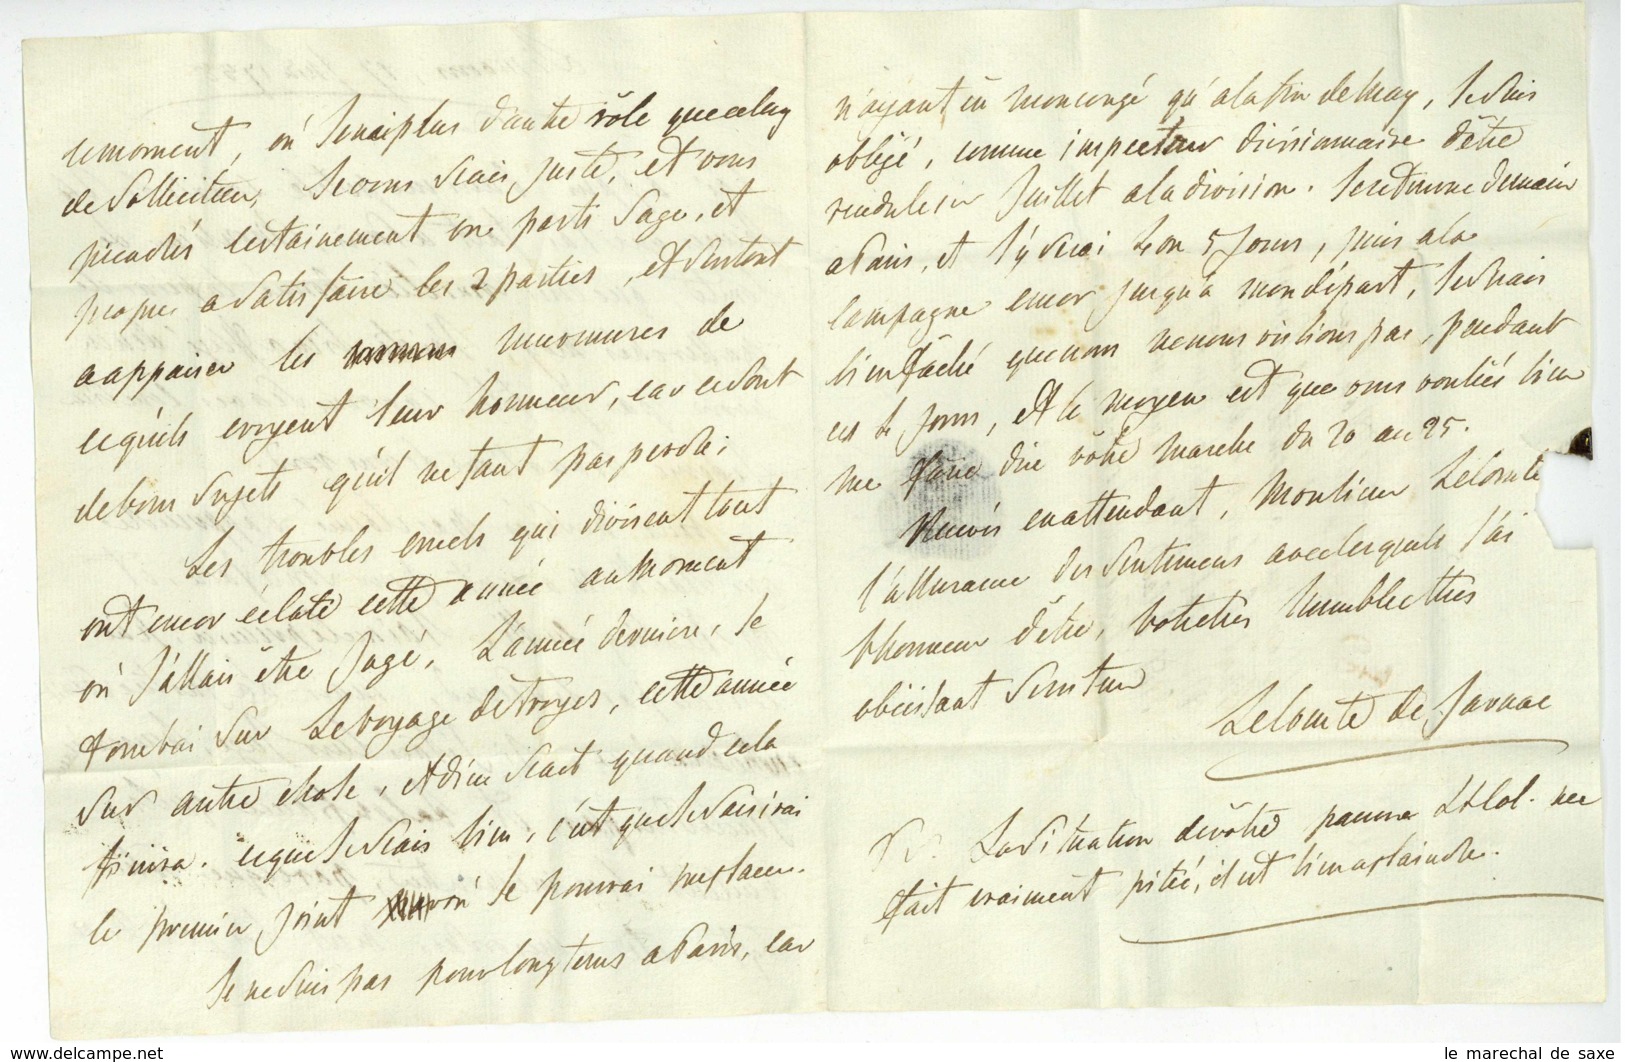 le moment, où Je n'ai plus d'autre rôle que celuy
de solliciteur, Je vous scais juste, et vous
prendrés certainement un parti sage, et
propre a satisfaire les 2 parties, et surtout
a appaiser les murmures de
ce qu'ils croyent leur honneur, car ce sont
de bons sujets qu'il ne faut pas perdre;
Les troubles cruels qui divisent tout
ont encor éclaté cette année au moment
où J'allais être Jugé, L'année derniere, Je
tombai sur Le voyage de troyes, cette année
sur autre chose, et dieu scait quand cela
finira. ce que Je scais bien, c'est que Je saisirai
le premier joint où Je pourrai me placer.
Je ne suis pas pour longtems a Paris, car
n'ayant eu mon congé qu'a la fin de May, Je suis
obligé, comme inspecteur divisionnaire d'être
rendu le 1er Juillet a la division. Je retourne demain
a Paris, et J'y serai 4 ou 5 Jours, puis a la
campagne encor jusqu'a mon départ, Je serais
bien fâché que nous ne nous vissions pas, pendant
ces 4 Jours, et le moyen est que vous vouliés bien
me faire dire vôtre marche du 20 au 25.
Recevés en attendant, Monsieur Le Comte
l'assurance des sentimens avec lesquels J'ai
l'honneur d'être, votre très humble et très
obéissant serviteur
Le Comte de Jarnac
La situation de vôtre pauvre Lt Col. me
fait vraiment pitié, il est bien a plaindre.
le marechal de saxe
www.delcampe.net